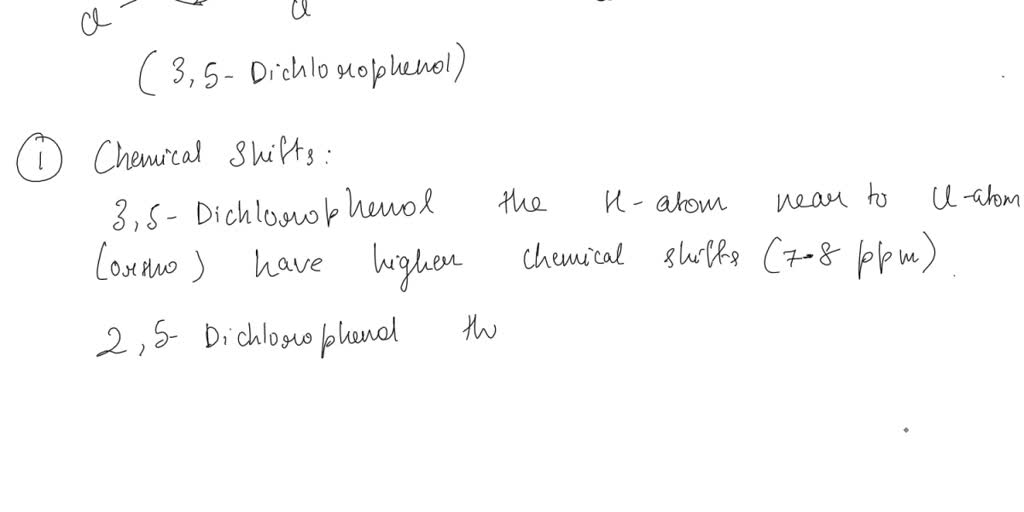 Cl Cl
(3,5- Dichlorophenol)
① Chemical Shifts:
3,5- Dichlorophenol the H-atom near to Cl-atom
(ortho) have higher chemical shifts (7-8 ppm).
2,5- Dichlorophenol th